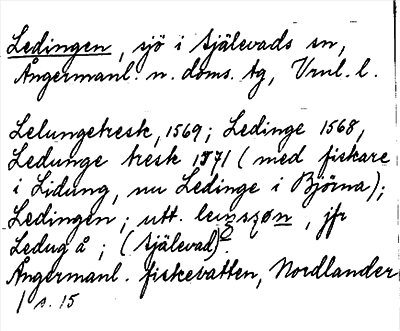 Ledingen, sjö i Själevads sn,
Ångermanl. n. doms. tg, Vrnl. l.
Lelungetresk, 1569; Ledinge 1568,
Ledunge tresk 1571 (med fiskare
i Lidung, nu Ledinge i Björna);
Ledingen; utt. , jfr
Ledug å; (Själevad).
Ångermanl. fiskevatten, Nordlander
s. 15